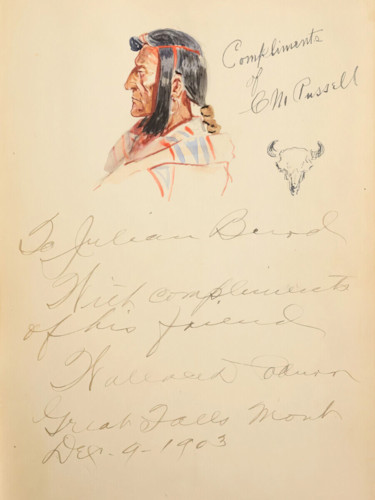 Compliments
of
C M Russell
To Julian
With compliments
of his friend
Great Falls Mont
Dec - 9 - 1903